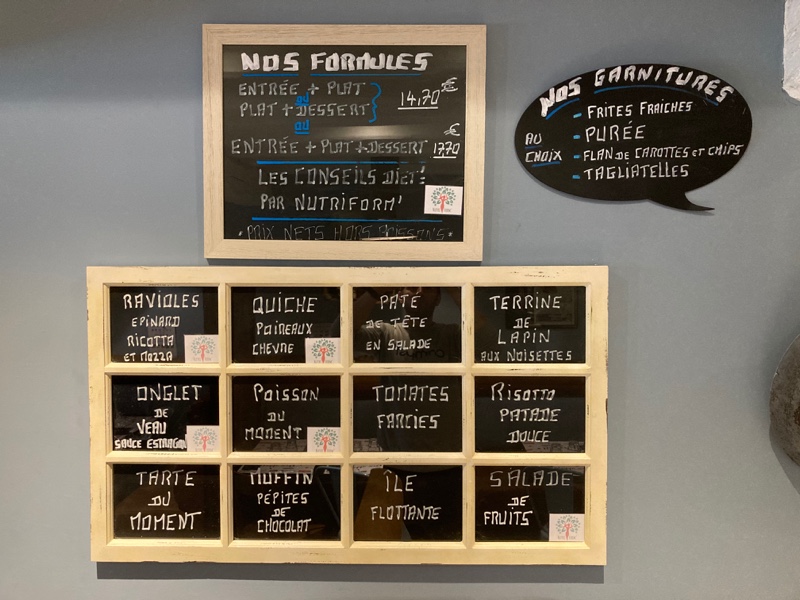 NOS FORMULES
ENTRÉE + PLAT
OU
PLAT + DESSERT
14,70 €
OU
ENTRÉE + PLAT + DESSERT 17,70 €
LES CONSEILS DIET'
PAR NUTRIFORM'
* PRIX NETS HORS BOISSONS *
NOS GARNITURES
AU
CHOIX
- FRITES FRAÎCHES
- PURÉE
- FLAN DE CAROTTES ET CHIPS
- TAGLIATELLES
RAVIOLES
EPINARD
RICOTTA
ET MOZZA
QUICHE
POIREAUX
CHEVRE
PATE
DE TÊTE
EN SALADE
TERRINE
DE
LAPIN
AUX NOISETTES
ONGLET
DE
VEAU
SAUCE ESTRAGON
POISSON
DU
MOMENT
TOMATES
FARCIES
RISOTTO
PATADE
DOUCE
TARTE
DU
MOMENT
MUFFIN
PÉPITES
DE
CHOCOLAT
ÎLE
FLOTTANTE
SALADE
DE
FRUITS